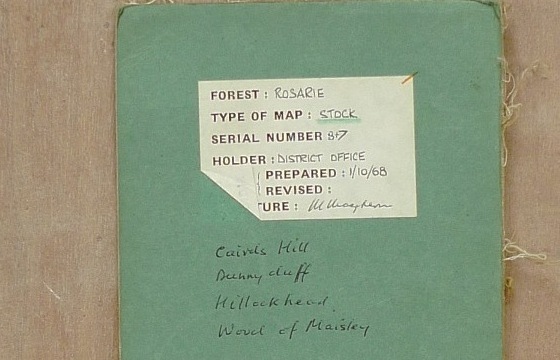 FOREST : ROSARIE
TYPE OF MAP : STOCK
SERIAL NUMBER 8+7
HOLDER : DISTRICT OFFICE
PREPARED : 1/10/68
REVISED :
TURE :
Cairds Hill
Dunnyduff
Hillockhead
Wood of Maisley